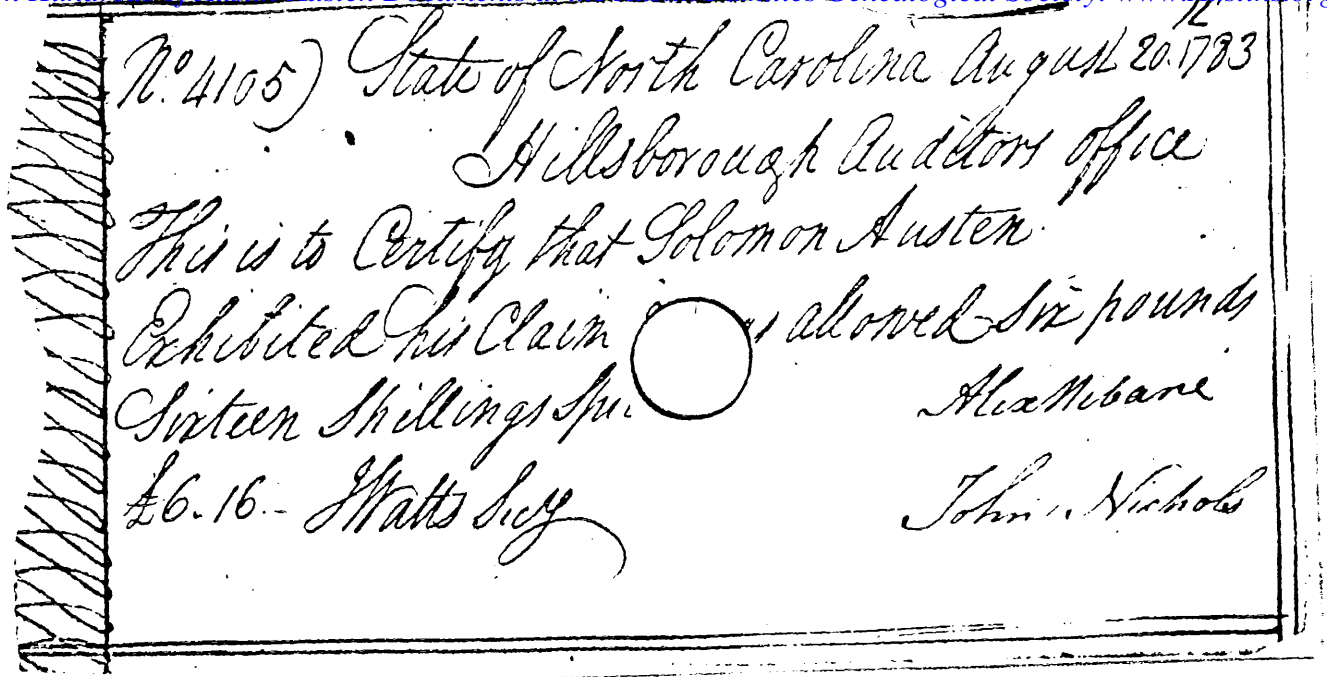 No. 4105) State of North Carolina August 20th 1783
Hillsborough Auditors office
This is to Certify that Solomon Austen
Exhibited his Claim allowed Six pounds
Sixteen Shillings
Alex Mebane
£6.16 - JWatts Secy
John Nichols